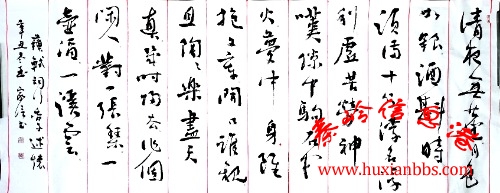 清夜無塵月色
如銀酒斟時
須滿十分浮名浮
利虛苦勞神
嘆隙中駒石中
火夢中身雖
抱文章開口誰親
且陶陶樂盡天
真幾時歸去作個
閑人對一張琴一
壺酒一溪雲
蘇軾詞行香子述懷
辛丑冬
秦岭信息港
www.huxianbbs.com